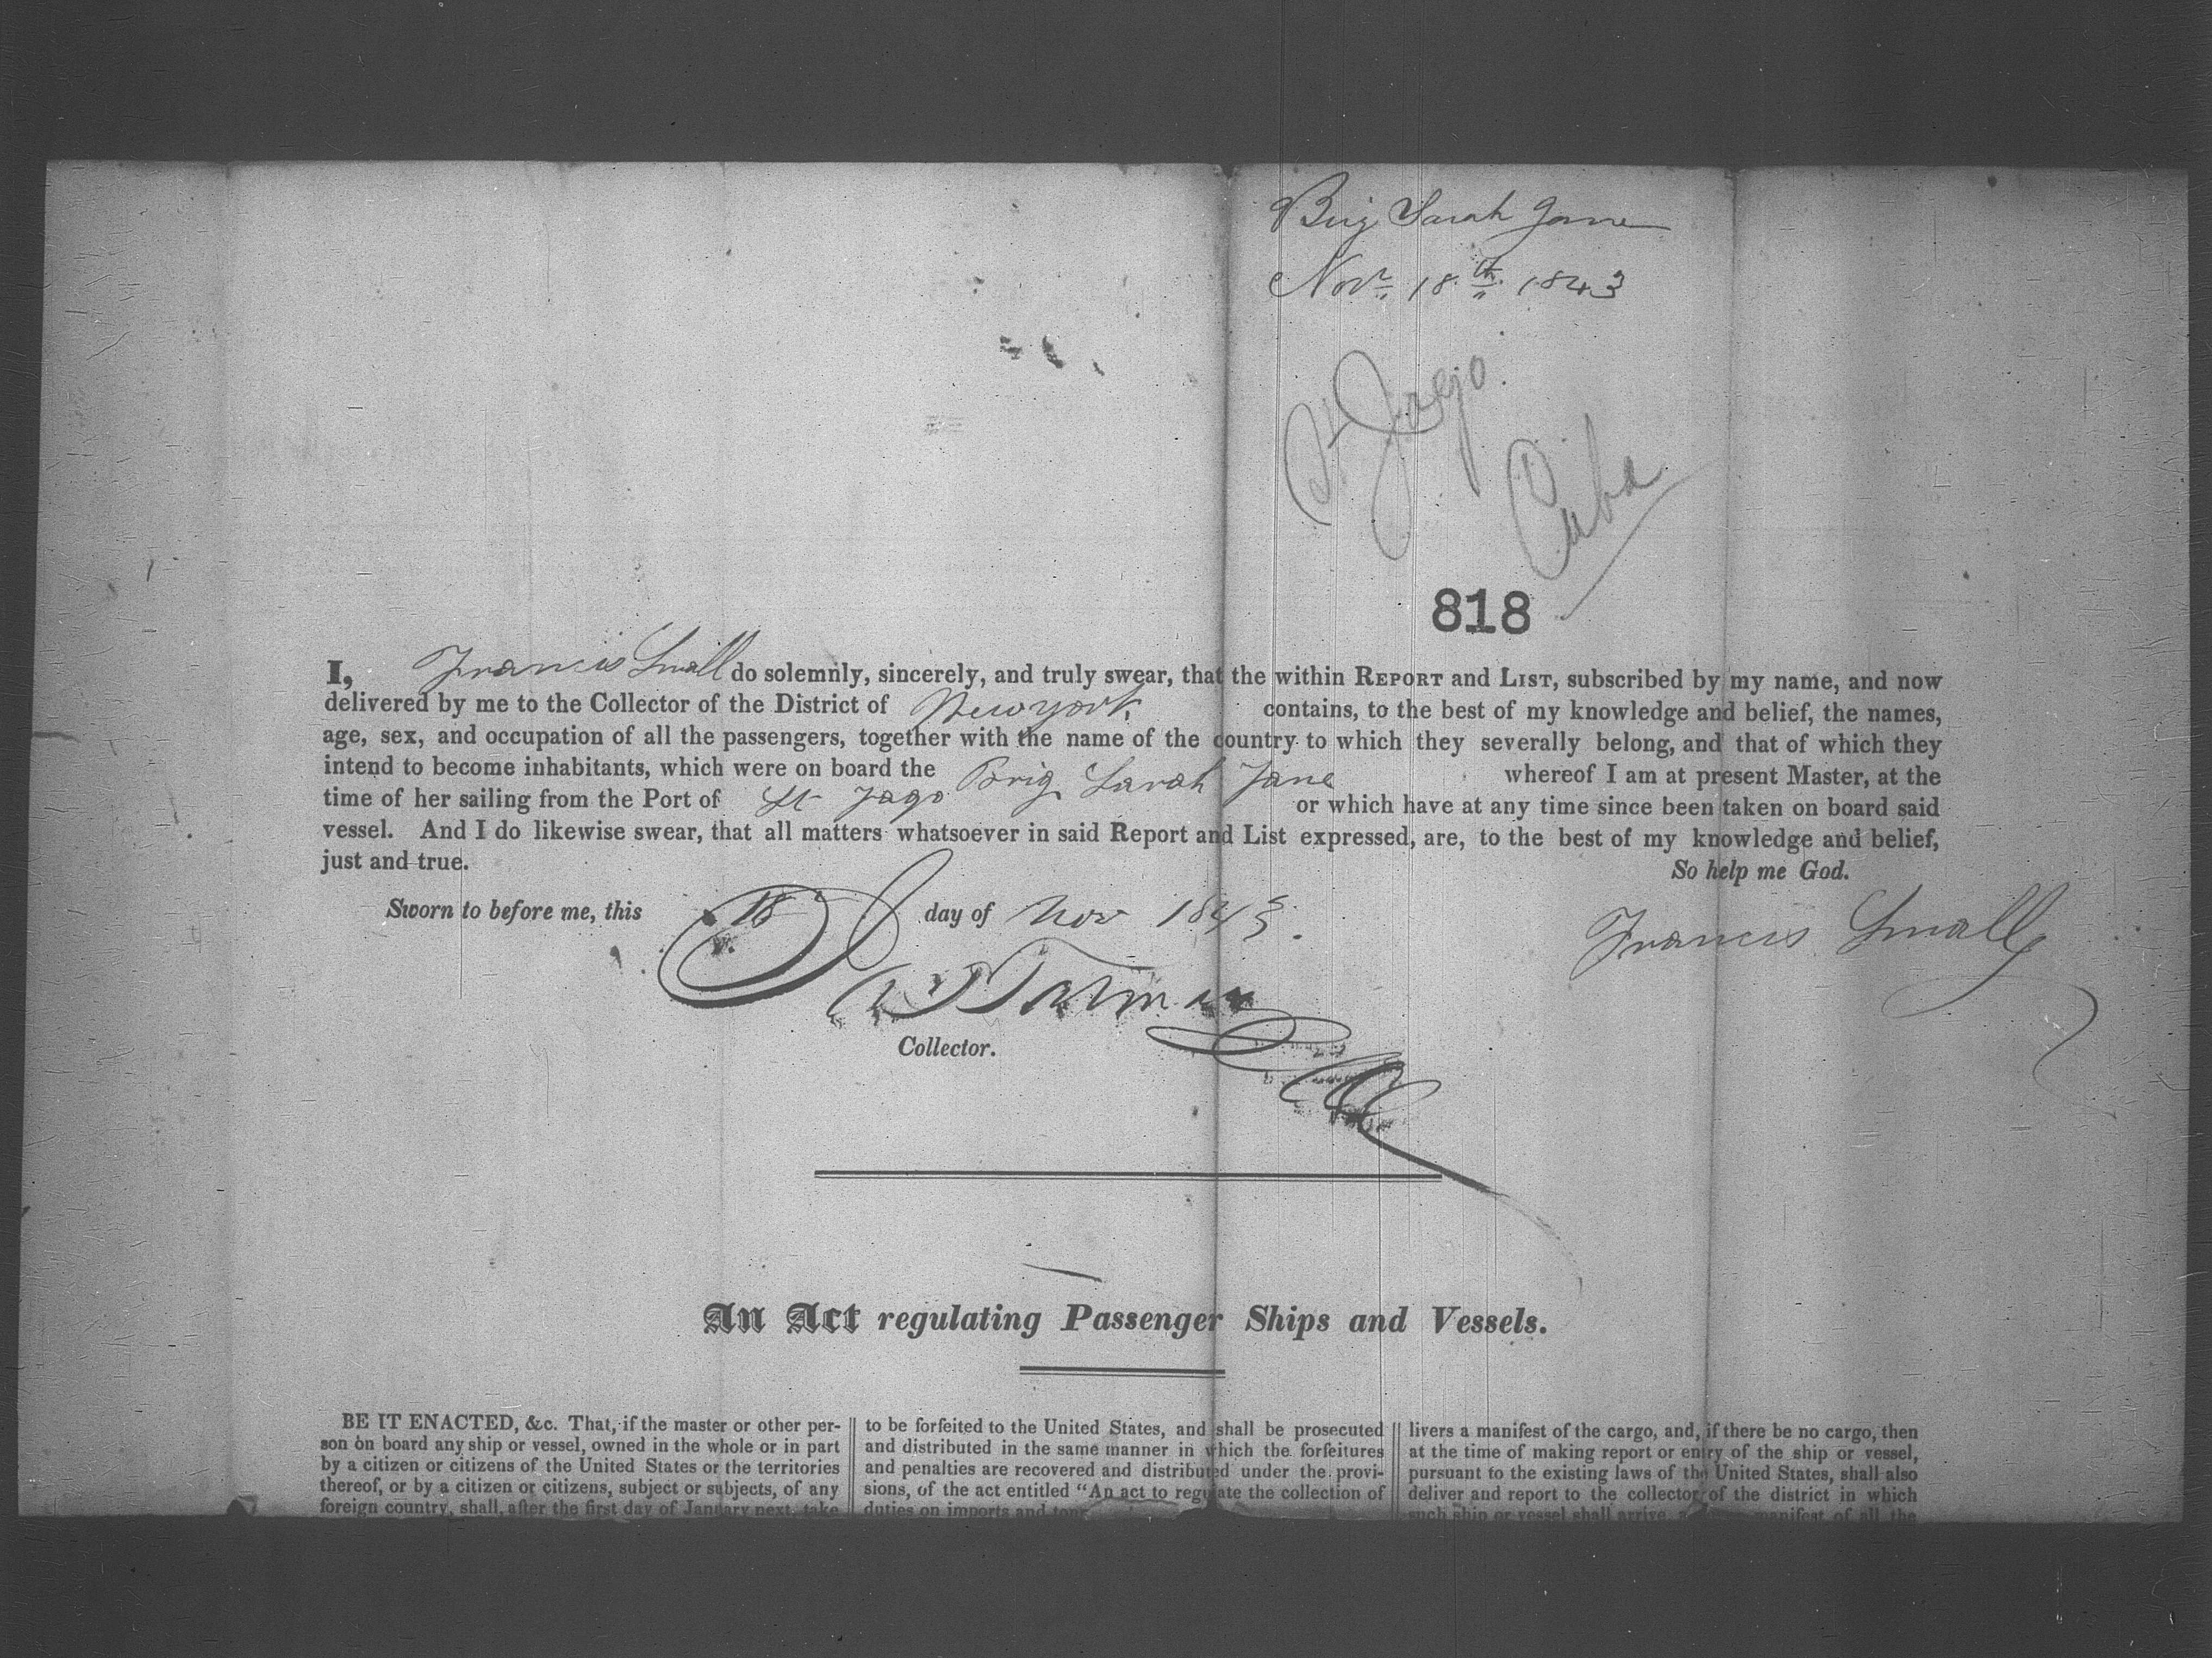 Brig Sarah Jane
Novr 18th 1843
St Jago.
Cuba
818
I, Francis Small do solemnly, sincerely, and truly swear, that the within REPORT and LIST, subscribed by my name, and now
delivered by me to the Collector of the District of New york contains, to the best of my knowledge and belief, the names,
age, sex, and occupation of all the passengers, together with the name of the country to which they severally belong, and that of which they
intend to become inhabitants, which were on board the Brig Sarah Jane whereof I am at present Master, at the
time of her sailing from the Port of St Jago or which have at any time since been taken on board said
vessel. And I do likewise swear, that all matters whatsoever in said Report and List expressed, are, to the best of my knowledge and belief,
just and true. So help me God.
Sworn to before me, this 18 day of Nov 1843.
Francis Small
Collector.
An Act regulating Passenger Ships and Vessels.
BE IT ENACTED, &c. That, if the master or other per-
son on board any ship or vessel, owned in the whole or in part
by a citizen or citizens of the United States or the territories
thereof, or by a citizen or citizens, subject or subjects, of any
foreign country, shall, after the first day of January next, take
to be forfeited to the United States, and shall be prosecuted
and distributed in the same manner in which the forfeitures
and penalties are recovered and distributed under the provi-
sions, of the act entitled "An act to regulate the collection of
duties on imports and
livers a manifest of the cargo, and, if there be no cargo, then
at the time of making report or entry of the ship or vessel,
pursuant to the existing laws of the United States, shall also
deliver and report to the collector of the district in which
such ship or vessel shall arrive, a manifest of all the